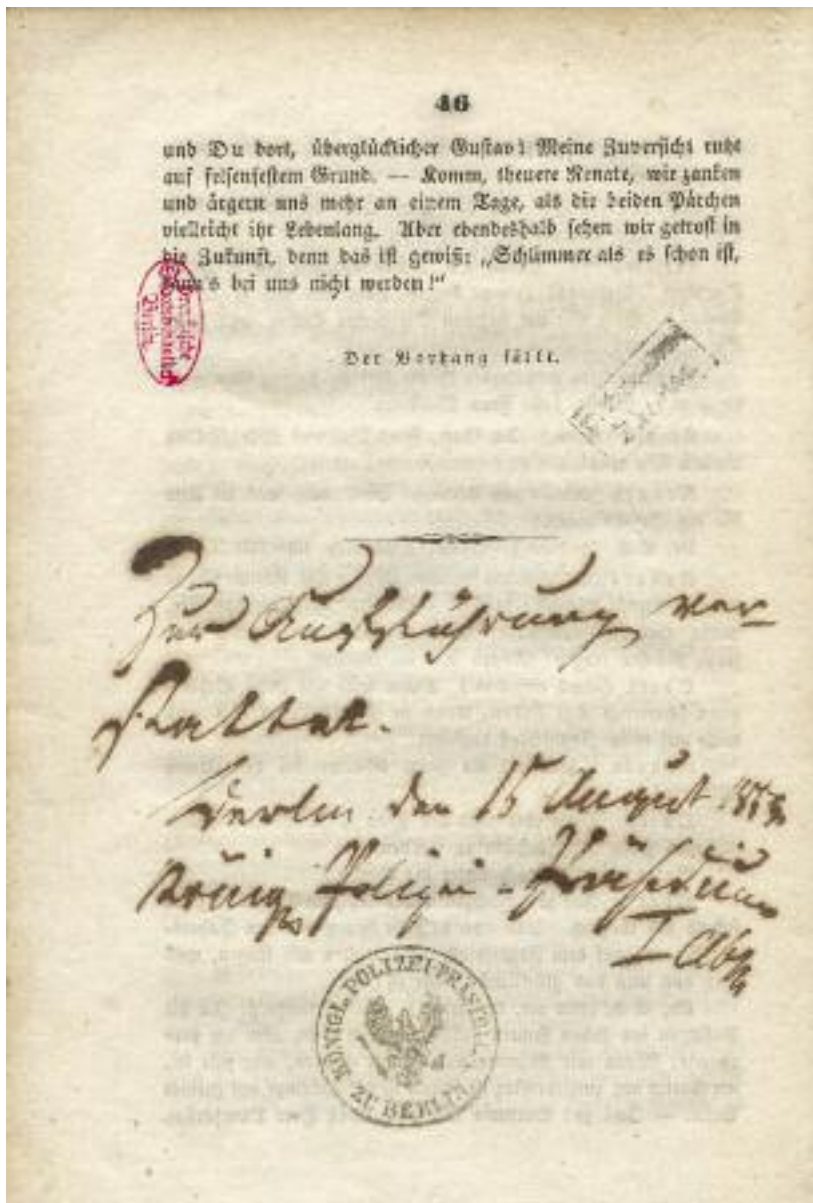 46
und Du dort, überglücklicher Gustav! Meine Zuversicht ruht
auf felsenfestem Grund. — Komm, theuere Renate, wir zanken
und ärgern uns mehr an einem Tage, als die beiden Pärchen
vielleicht ihr Lebenlang. Aber ebendeshalb sehen wir getrost in
die Zukunft, denn das ist gewiß: „Schlimmer als es schon ist,
kann's bei uns nicht werden!“
Der Vorhang fällt.
Zur Aufführung ver-
stattet.
Berlin den 15 August
Königs Polizei-Präsidium
I Abth
KÖNIGL. POLIZEI-PRÄSIDIUM
ZU BERLIN